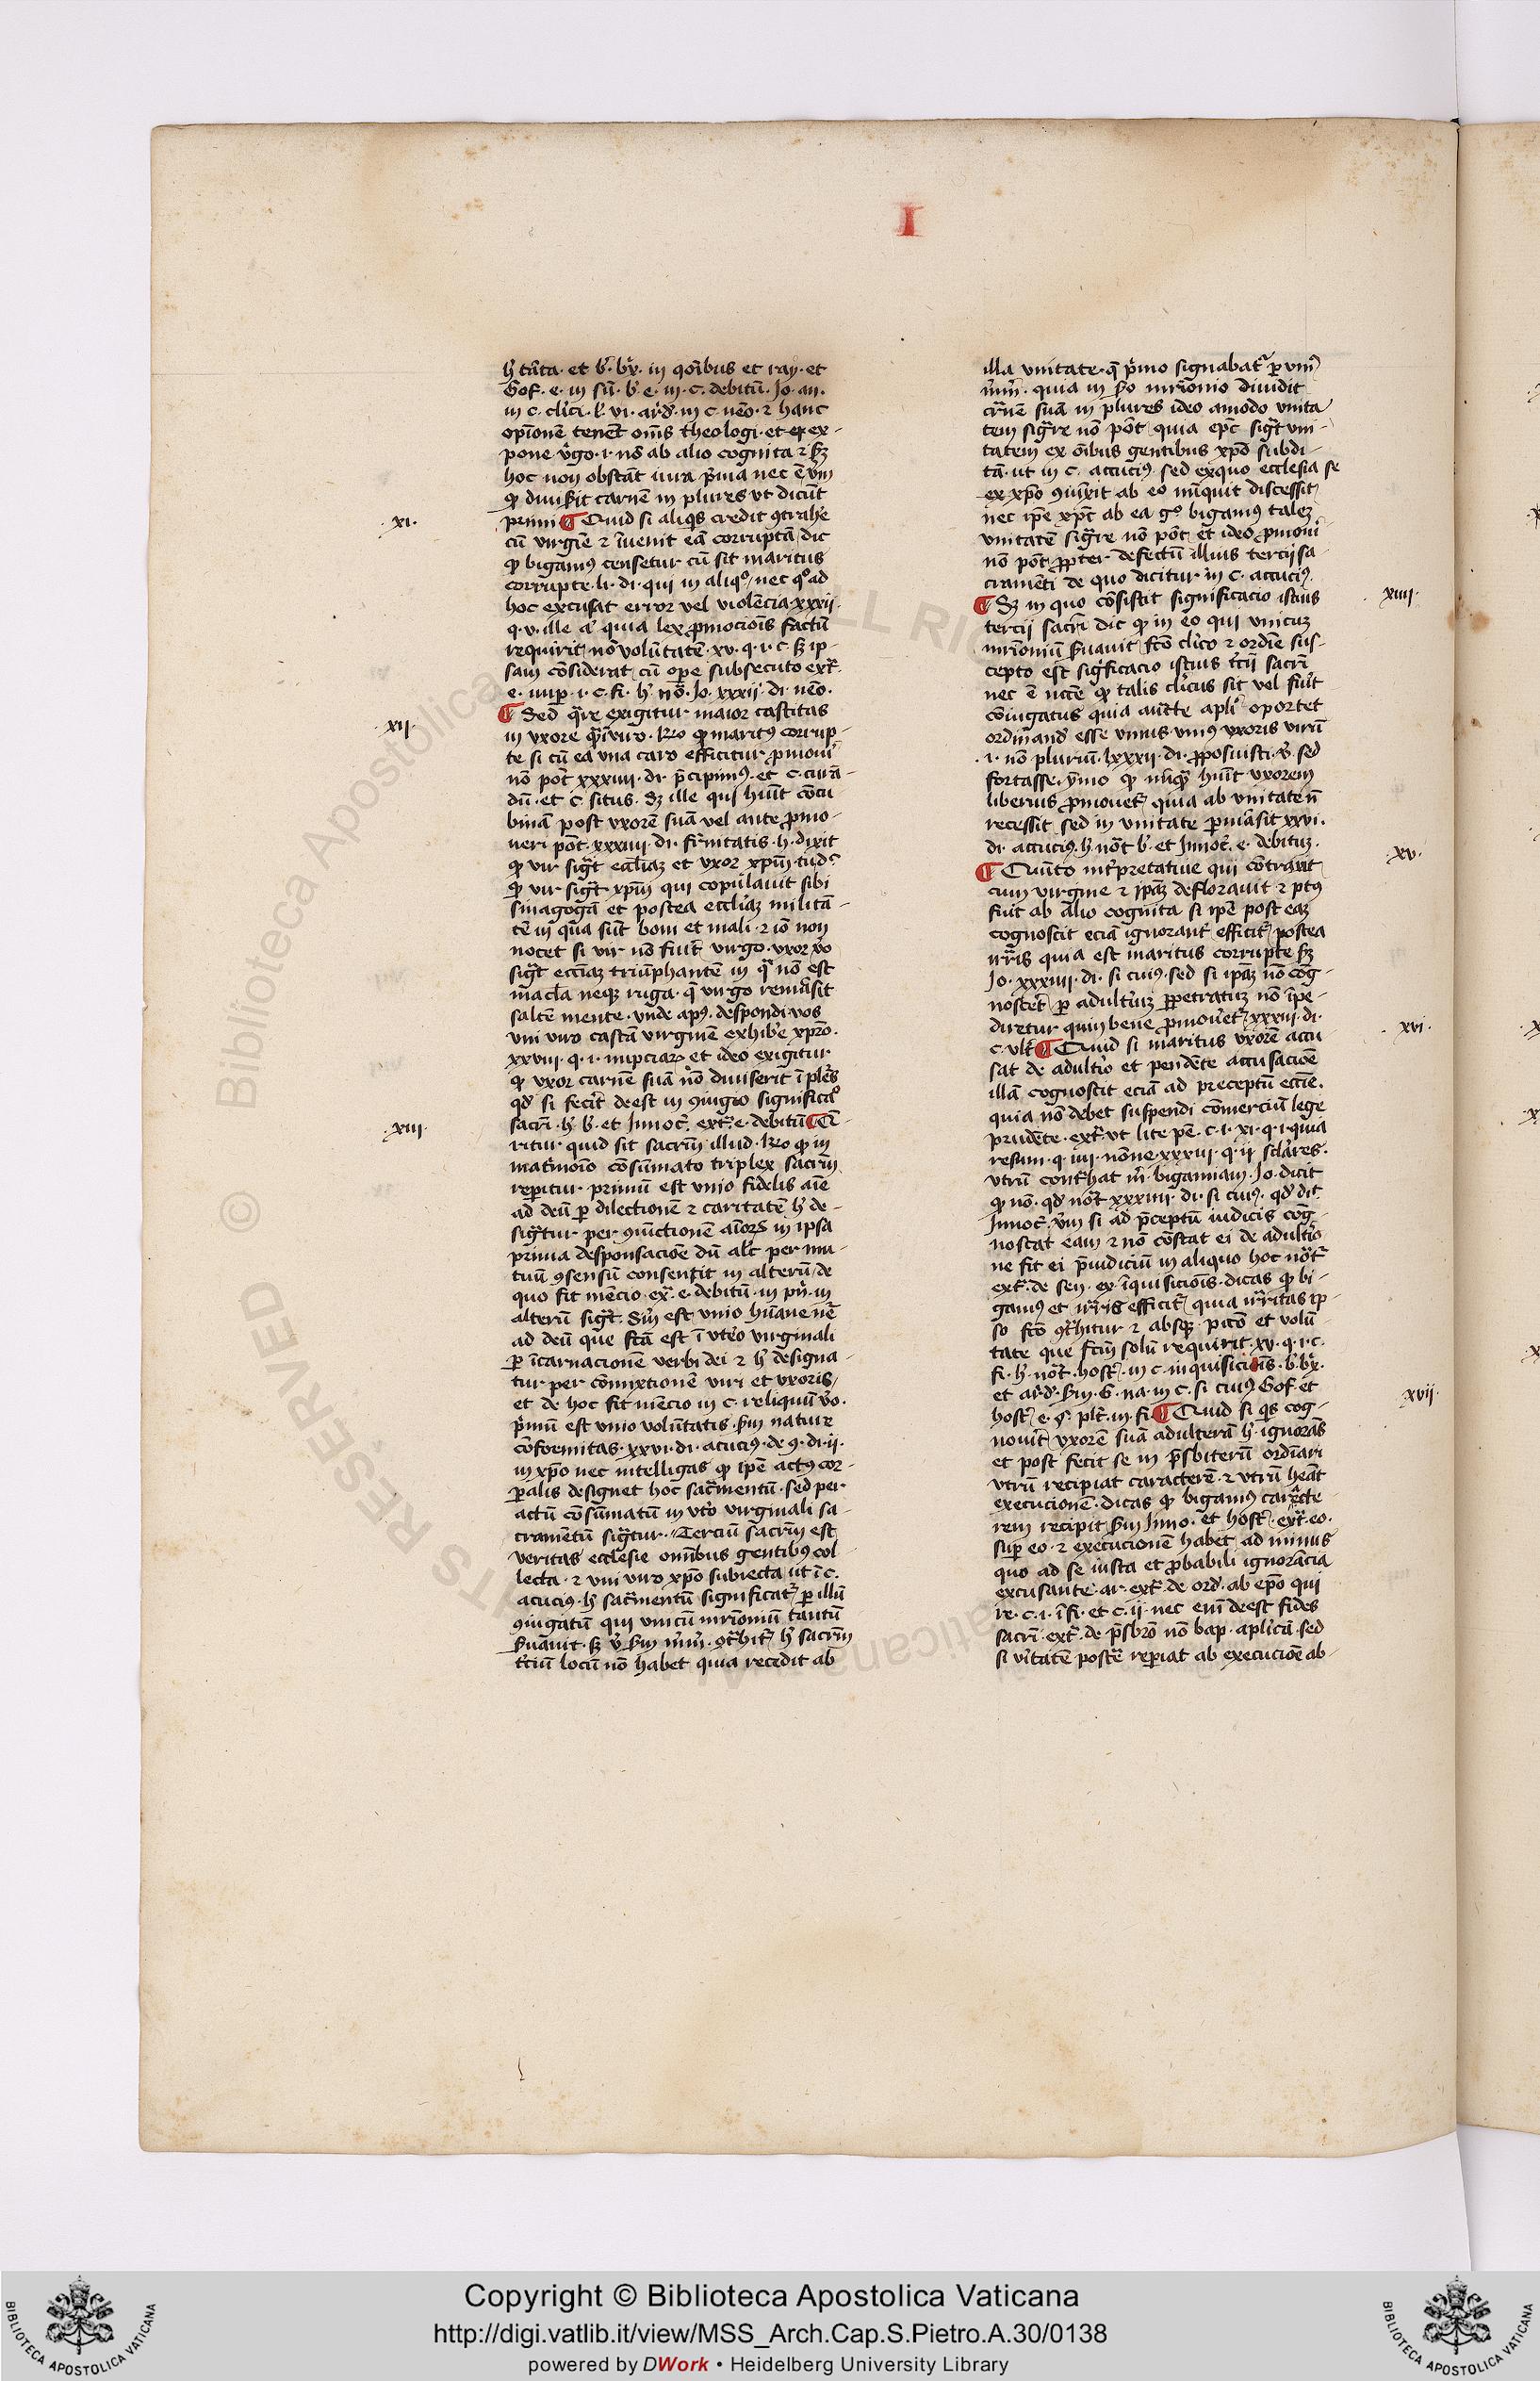 I
hͥ tāta · et b᷑ · bꝝ · in qōibus et ray · et
Gof · e · in sū · b᷑ e · in · c · debitū · Jo · an ·
in c · clīci · l᷑ · vi · arͥd᷑ · in c · nēo · ⁊ hanc
opīonē tenēt om̄s theologi · et ex-
pone v᷑go · i · nō ab alio cognita ⁊ sꝫ
hoc non obstāt iura p̄ma nec ē vm̄
ꝙ diuisit carnē in plures vt dicūt
primi ¶ Quid si aliqͥs credit ꝯtrahe᷑
cū virgīe ⁊ īuenit eā corruptā dic
ꝙ bigamꝰ censetur cū sit maritus
corrupte · li · di · qui in aliqͦ · nec qͦ ad
hoc excusat error vel violēcia · xxxii ·
q · v · ille a᷑ quia lex ꝓmociōis factū
requirit nō volūtatē · xv · q · i · c · sꝫ ip-
sam cōsiderat cū ope subsecuto ext᷑ ·
e · nup · i · c · fi · h᷑ nō᷑ · Jo · xxxii · di · nēo ·
¶ Sed q̄re exigitur maior castitas
in vxore q̄ī viro · Rͦo ꝙ maritꝰ corrup-
te si cū ea vna caro efficitur ꝓmoui᷑
nō pōt xxxiiii · di · p̄cipimꝰ · et c · curā-
dū · et c · situs · Sꝫ ille qui hūit cōcu
binā post vxorē suā vel ante ꝓmo-
ueri pōt · xxxiiii · di · fr̄nitatis · h · dixit
ꝙ vir sigͣt ecc̄liaꝫ et vxor xp̄m · tud᷑
ꝙ vir sigͣt xp̄m qui copulauit sibi
sinagogā et postea ecc̄liaꝫ militā-
tē in qua sūt boni et mali · ⁊ iō non
nocet si vir nō fuit virgo · vxor v᷑o
sigͣt ecc̄iaꝫ triūphantē in qͣ nō est
macl̄a neqꝫ ruga · q̄ virgo remāsit
saltē mente · vnde apꝰ · despondi vos
vni viro castā virginē exhibe᷑ xp̄o ·
xxvii · q · i · nupciaꝝ et ideo exigitur
ꝙ vxor carnē suā nō diuiserit ī pl᷑es
qd᷑ si fecit deest in ꝯiugio significaͦ
sacr̄i · h᷑ b᷑ · et Innoc᷑ · ext᷑ · e · debitū ¶ Q̄-
ritur quid sit sacrm̄ illud · Rͦo ꝙ in
mat᷑moīo cōsūmato triplex sacrm̄
reperitur · primū est vnio fidelis aīe
ad deū ꝑ dilectionē ⁊ caritatē h᷑ de-
sigͣtur per ꝯiūctionē aīoꝝ in ipsa
prima desponsacioē dū al̄t per mu-
tuū ꝯsensū consentit in alterū · de
quo fit mēcio · ex᷑ · e · debitū · in pn̄ · in
alterū sigͣt · Sm̄ est vnio hūane nē᷑
ad deū que f̄ta est ī vt᷑o virginali
ꝑ īcarnacionē verbi dei ⁊ h᷑ designa-
tur per cōmixtionē viri et vxoris
et de hoc fit mēcio in c · reliquū v᷑o ·
p̄mū est vnio volūtatis · sm̄ nature
cōformitas · xxvi · di · acucius · de ꝯ · di · ii ·
in xp̄o nec intelligas ꝙ ip̄e actꝰ cor-
ꝑalis designet hoc sacͣmentū · sed per
actū cōsūmatū in vt᷑o virginali sa-
cramētū sigͣtur · Terciū sacrm̄ est
veritas ecclesie om̄ibus gentibꝰ col-
lecta · ⁊ vni viro xp̄o subiecta · ut ī c ·
acuciꝰ · h᷑ sacͣmentū significat᷑ ꝑ illū
ꝯiugatū qui vnicū mr̄ioniū tantū
s᷑uauit · sꝫ v᷑ sm̄ m̄m᷑ · ꝯt᷑hit᷑ h᷑ sacrm̄
t᷑ciū locū nō habet quia recedit ab
· xi ·
· xii ·
· xiii ·
illa vnitate · q̄ p̄mo signabat᷑ ꝑ vm̄
m̄m᷑ · quia in sͦo mr̄ionio diuidit
cr̄nē suā in plures ideo amodo vnita
tem sigͣre nō pōt quia ep̄c sigͣt vni-
tatem ex oībus gentibus xp̄o subdi-
tā · ut in c · accuciꝰ · sed exquo ecclesia se
ex xp̄o ꝯiūxit ab eo nūquā discessit
nec ip̄e xp̄c ab ea gͦ bigamꝰ talez
vnitatē sigͣre nō pōt et ideo ꝓmoui᷑
nō pōt ꝓpter defectū illius tercii sa-
cramēti de quo dicitur in c · accuciꝰ ·
¶ Sꝫ in quo cōsistit significacio istius
tercii sacr̄i dic ꝙ in eo qui vnicuꝫ
mr̄ioniū s᷑uauit · sc̄o cl᷑ico ⁊ ordīe sus-
cepto est sigͥficacio istius t᷑cii sacr̄i
nec ē nc̄cē ꝙ talis cl᷑icus sit vel fuit
cōiugatus quia autē apl̄i oportet
ordinand᷑ esse vnius vniꝰ vxoris virū
· i · nō pluriū · lxxxii · di · ꝓposuisti · v᷑ · sed
fortasse · ymo ꝙ nūqͣ hūit vxorem
liberius ꝓmouet᷑ quia ab vnitate n̄
recessit sed in vnitate ꝑmāsit xxvi ·
di · accuciꝰ · h᷑ nō᷑t b᷑ · et Innoc᷑ · e · debituꝫ ·
¶ Quīto int᷑pretatiue qui cōtraxit
cum virgine ⁊ ipaꝫ deflorauit ⁊ ptꝰ
fuit ab alio cognita si ip̄e post eaꝫ
cognoscit eciā ignorant᷑ efficit᷑ postea
irͣris quia est maritus corrupte sꝫ
Jo · xxxiiii · di · si cuiꝰ · sed si ipaꝫ nō cōg-
nosce᷑t ꝑ adult᷑iuꝫ ꝑpetratuꝫ nō īpe-
diretur quin bene ꝓmoue᷑t᷑ xxxiii · di ·
c · vlt᷑ ¶ Quid si maritus vxorē accu
sat de adult᷑io et pendēte accusacioē
illā cognoscit eciā ad preceptū ecc̄ie ·
quia nō debet suspendi cōmerciū lege
prudēte · ext᷑ · vt lite pē · c · i · xi · q · i · quia
resum · q · iiii · nōne · xxxiii · q · ii · scl᷑ares ·
vtrū cont᷑hat m᷑ · bigamiam · Jo · dicit
ꝙ nō · qd᷑ nō᷑t xxxiiii · di · si cuiꝰ · qd᷑ dit᷑
Innoc᷑ · v᷑m si ad p̄ceptū iudicis cōg-
noscat eam ⁊ nō cōstat ei de adult᷑io
ne fit ei p̄iudiciū in aliquo hoc nō᷑t᷑
ext᷑ · de sen · ex · īquisiciōis · dicas ꝙ bi-
gamꝰ et irͣris efficit᷑ quia irͣritas ip-
so fc̄o ꝯt᷑hitur ⁊ absqꝫ pc̄to et volū-
tate que fc̄m solū requirit · xv · q · i · c ·
fi · h᷑ · nō᷑t · host᷑ · in c · inquisiciōis · b᷑ · bꝝ ·
et arͥd᷑ · sm̄ · G · na · in c · si cuiꝰ Gof · et
host᷑ e · ꝯ · pl᷑t · in · fi · ¶ Quid si qͥs cog-
nouit vxorē suā adulterā h᷑ · ignorās
et post fecit se in p̄sbiterū ordīari
vtrū recipiat caracterē · ⁊ vtrū heāt
execucionē · dicas ꝙ bigamꝰ caracte-
rem recipit sm̄ Inno · et host᷑ · ext᷑ · eo ·
suꝑ eo · ⁊ execucionē habet ad minus
quo ad se iusta et ꝓbabili ignorācia
excusante · ar · ext᷑ · de ord᷑ · ab ep̄o qui
re · c · i · ī fi · et c · ii · nec eni deest fides
sacr̄i · ext᷑ · de p̄sb̄ro nō bap · apl̄icā · sed
si v᷑itatē post᷑ reperiat ab execucioē ab-
· xiiii ·
· xv ·
· xvi ·
· xvii ·
Copyright © Biblioteca Apostolica Vaticana
http://digi.vatlib.it/view/MSS_Arch.Cap.S.Pietro.A.30/0138
powered by DWork • Heidelberg University Library